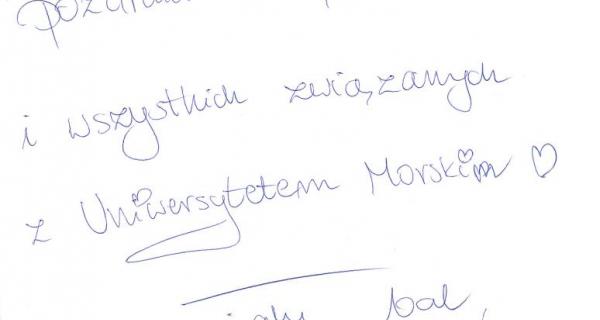 i wszystkich związanych
z Uniwersytetem Morskim ♡
bal,